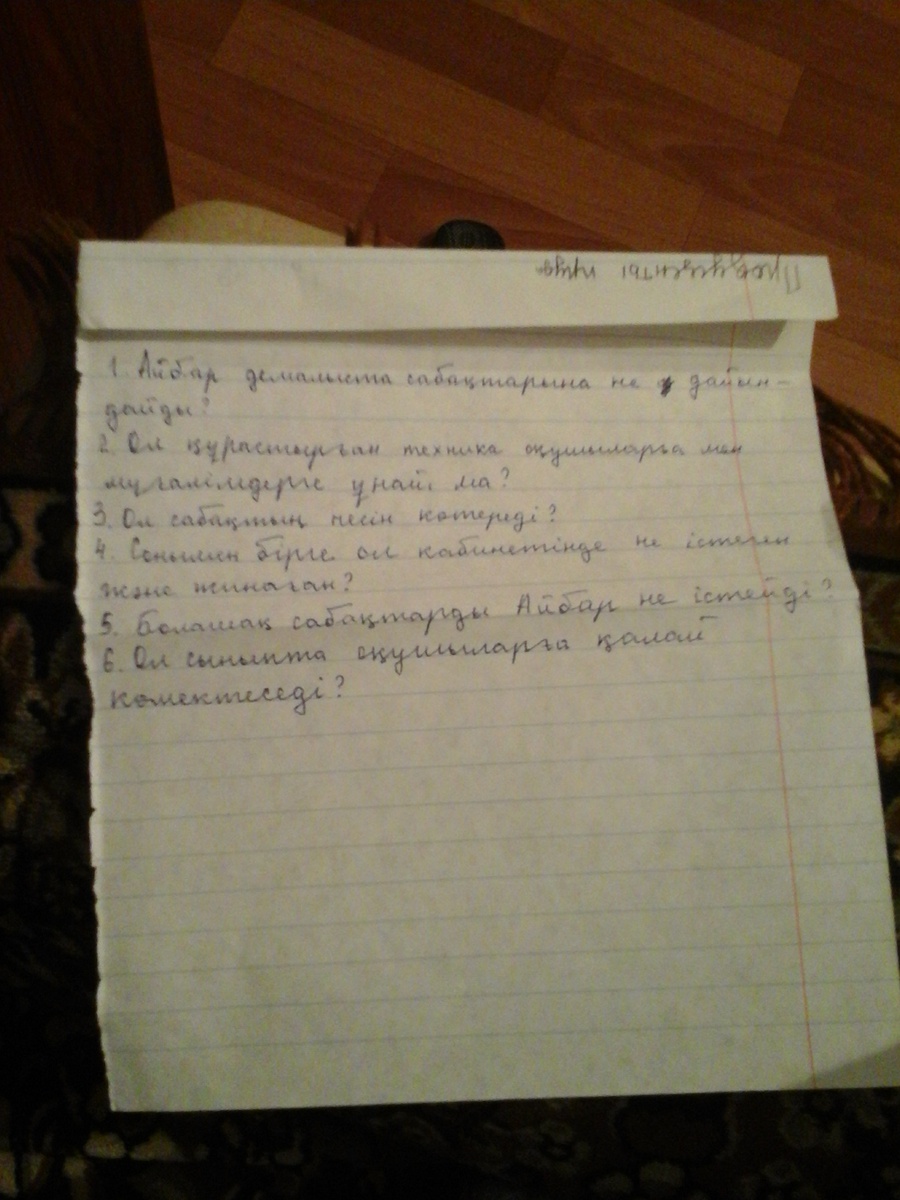 Президенты
1. Айбар демалыста сабақтарына не дайын-
дайды?
2. Ол құрастырған техника оқушыларға мен
мұғалімдерге ұнай ма?
3. Ол сабақтың несін көтереді?
4. Сонымен бірге ол кабинетінде не істеген
және жинаған?
5. Болашақ сабақтарды Айбар не істейді?
6. Ол сыныпта оқушыларға қалай
көмектеседі?